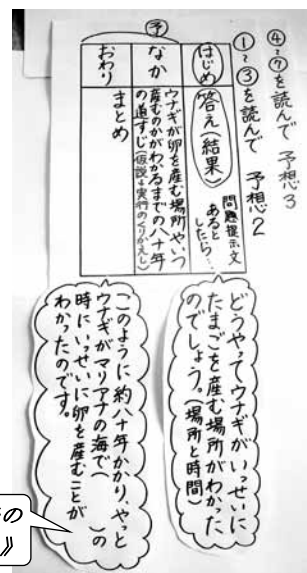 ④〜⑦を読んで 予想3
①〜③を読んで 予想2
予
はじめ
答え(結果)
問題提示文
あると
したら…
なか
ウナギが卵を産む場所や、いつ
産むのかがわかるまでの八十年
の道すじ(仮説→実行のくりかえし)
おわり
まとめ
どうやってウナギがいっせいに
たまごを産む場所がわかった
のでしょう。(場所と時間)
このように約八十年かかり、やっと
ウナギがマリアナの海で(　　)の
時にいっせいに卵を産むことが
わかったのです。
の
》